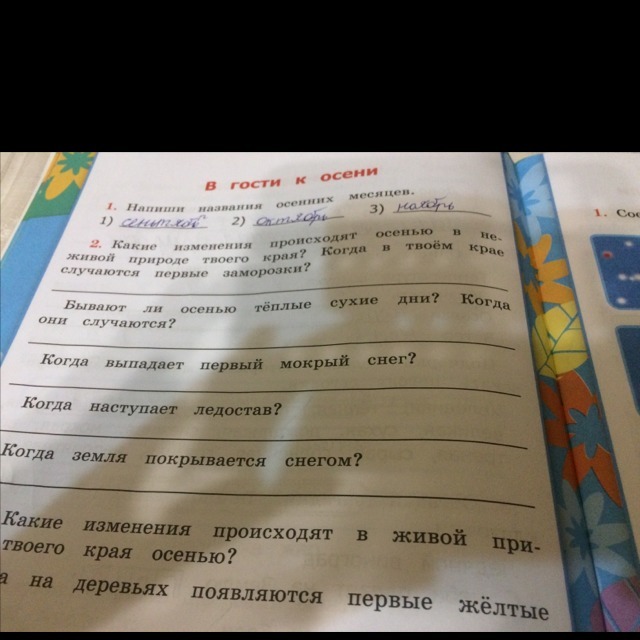 В гости к осени
1. Напиши названия осенних месяцев.
1) сентябрь 2) октябрь 3) ноябрь
2. Какие изменения происходят осенью в не-
живой природе твоего края? Когда в твоём крае
случаются первые заморозки?
Бывают ли осенью тёплые сухие дни? Когда
они случаются?
Когда выпадает первый мокрый снег?
Когда наступает ледостав?
Когда земля покрывается снегом?
Какие изменения происходят в живой при-
твоего края осенью?
а на деревьях появляются первые жёлтые
1. Сос